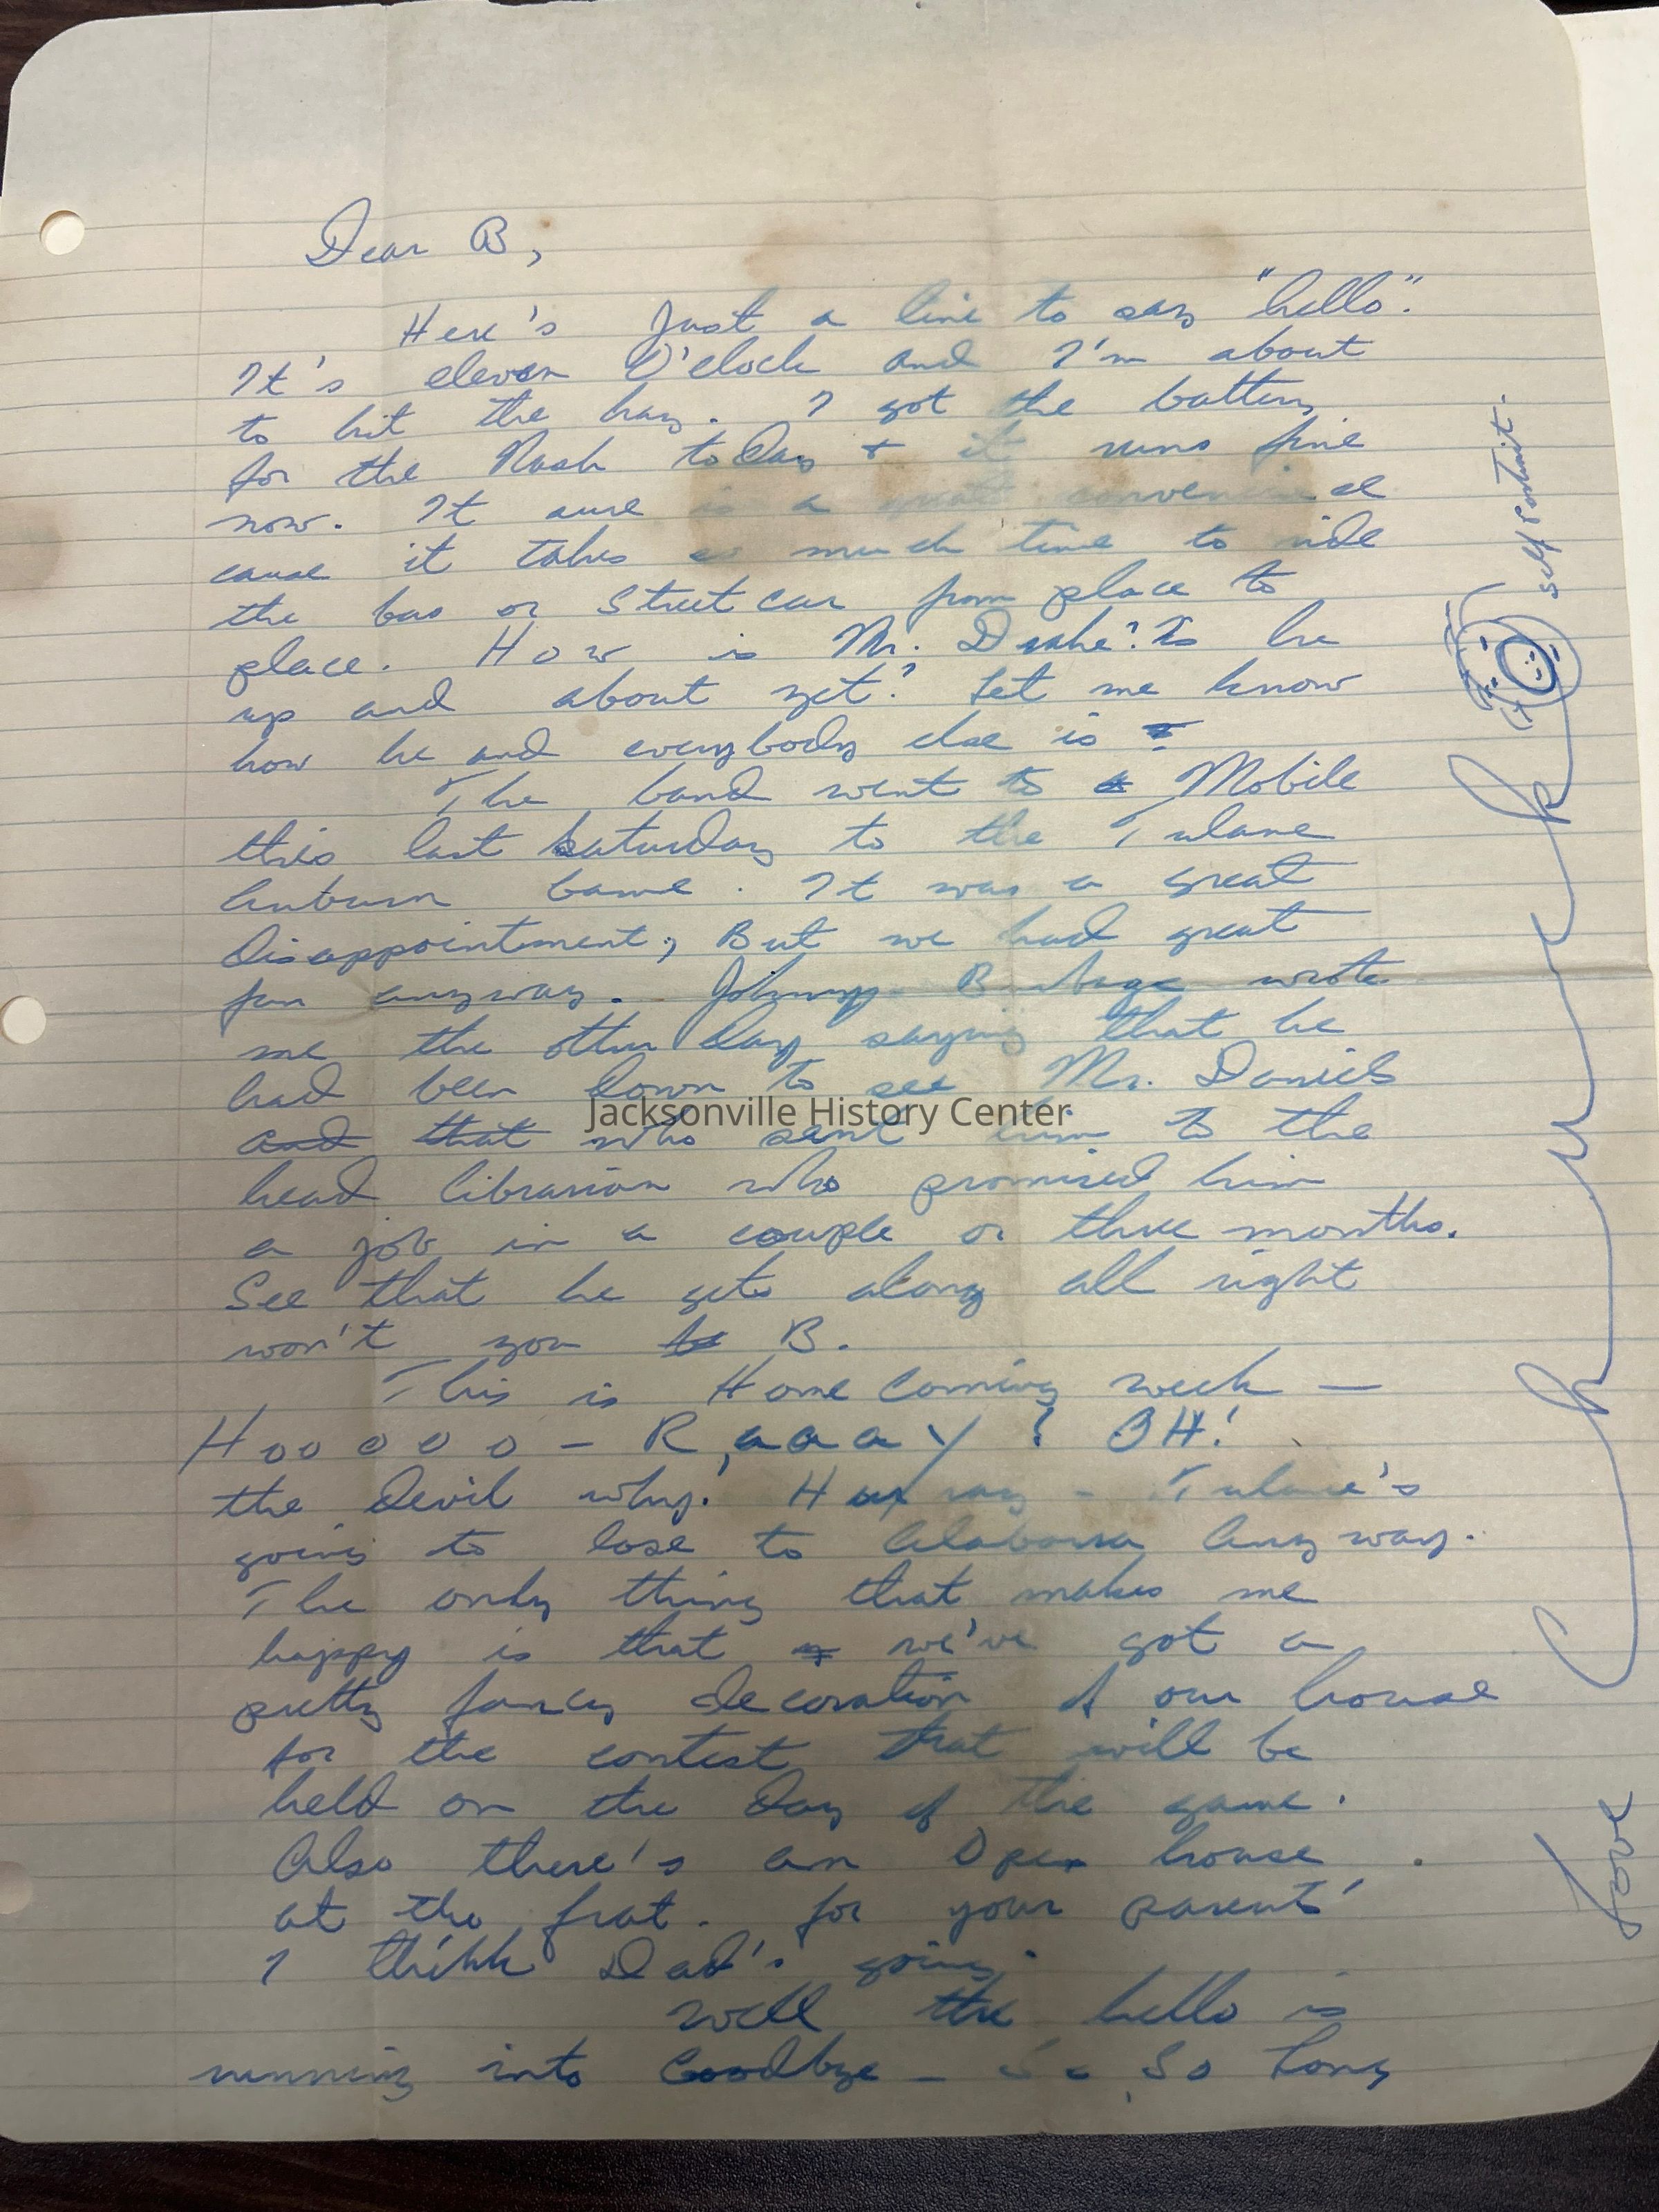 Dear B,
Here's Just a line to say "hello".
It's eleven O'clock and I'm about
to hit the hay. I got the battery
for the Nash today + it runs fine
now. It sure is a great convenience
cause it takes so much time to ride
the bus or Street car from place to
place. How is Mr. Drake? Is he
up and about yet? Let me know
how he and everybody else is
The band went to Mobile
this last Saturday to the Tulane
Auburn Game. It was a great
Disappointment, But we had great
fun anyway. Johnny wrote
me the other day saying that he
had been down to see Mr. Daniels
and that who sent him to the
head librarian who promised him
a job in a couple or three months.
See that he gets along all right
won't you B.
This is Home Coming week —
Hooooo - Raaaay ! OH!
the Devil why! Hooray - Tulane's
going to lose to Alabama Anyway.
The only thing that makes me
happy is that we've got a
pretty fancy decoration of our house
for the contest that will be
held on the day of the game.
Also there's an Open house
at the frat. for your parents'
I think Dad's going.
Well the hello is
running into Goodbye - So So Long
Love
Chuck
Self Portrait.
Jacksonville History Center